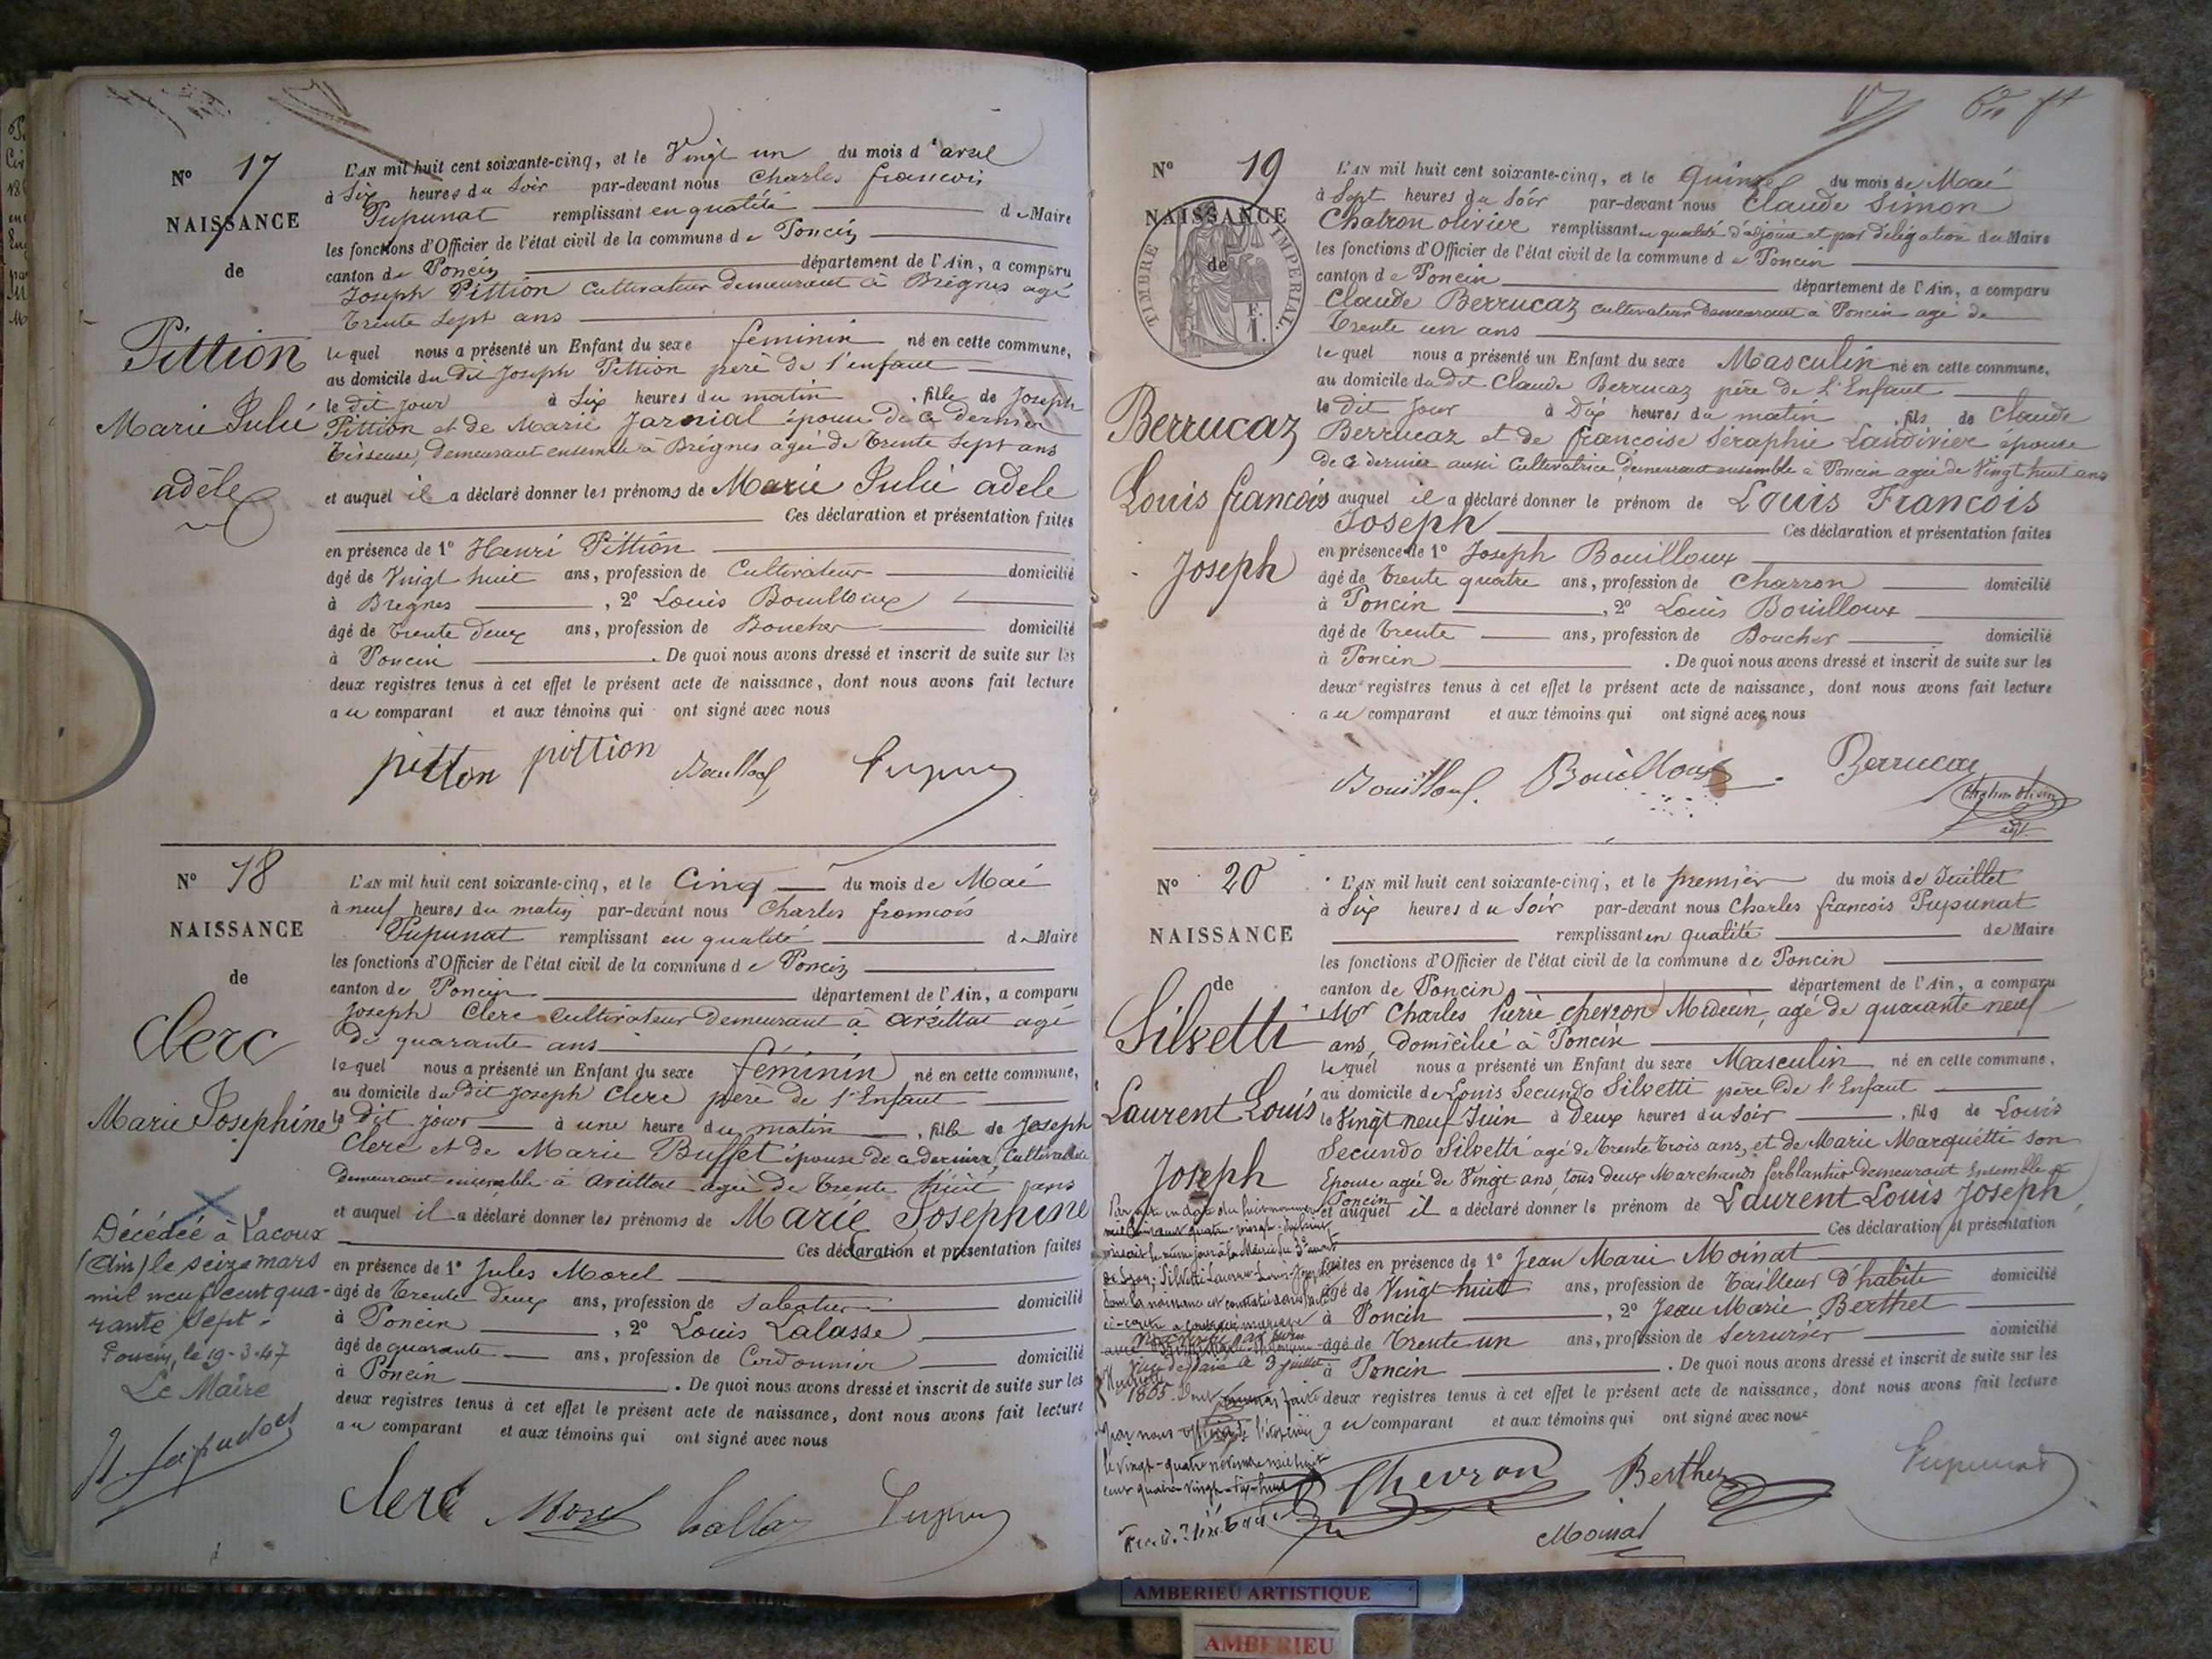 N° 17
NAISSANCE
de
Pittion
Marie Julie
adèle
L'AN mil huit cent soixante-cinq, et le Vingt un du mois d'avril
à Six heures du Soir par-devant nous Charles françois
Pupunat remplissant en qualité de Maire
les fonctions d'Officier de l'état civil de la commune de Poncin
canton de Poncin département de l'Ain, a comparu
Joseph Pittion Cultivateur demeurant à Brégnes agé
trente sept ans
lequel nous a présenté un Enfant du sexe feminin né en cette commune,
au domicile du dit Joseph Pittion père de l'enfant
le dit jour à Six heures du matin, fille de Joseph
Pittion et de Marie Jarnial épouse de ce dernier
Tisseuse, demeurant ensemble à Brégnes agée de trente sept ans
et auquel il a déclaré donner les prénoms de Marie Julie adele
Ces déclaration et présentation faites
en présence de 1° Henri Pittion
âgé de Vingt huit ans, profession de Cultivateur domicilié
à Bregnes, 2° Louis Bouilloux
âgé de trente deux ans, profession de Boucher domicilié
à Poncin. De quoi nous avons dressé et inscrit de suite sur les
deux registres tenus à cet effet le présent acte de naissance, dont nous avons fait lecture
au comparant et aux témoins qui ont signé avec nous
pittion pittion
N° 18
NAISSANCE
de
Clerc
Marie Josephine
Décédée à Lacoux
(Ain) le seize mars
mil neuf cent qua-
rante sept.
Poncin, le 19-3-47
Le Maire
L'AN mil huit cent soixante-cinq, et le Cinq du mois de Mai
à neuf heures du matin par-devant nous Charles francois
Pupunat remplissant en qualité de Maire
les fonctions d'Officier de l'état civil de la commune de Poncin
canton de Poncin département de l'Ain, a comparu
Joseph Clerc Cultivateur demeurant à agé
de quarante ans
lequel nous a présenté un Enfant du sexe féminin né en cette commune,
au domicile du dit Joseph Clerc père de l'Enfant
le Dit jour à une heure du matin, fille de Joseph
Clerc et de Marie Buffet épouse de ce dernier, Cultivatrice
demeurant ensemble à agée de trente huit ans
et auquel il a déclaré donner les prénoms de Marie Josephine
Ces déclaration et présentation faites
en présence de 1° Jules Morel
âgé de trente deux ans, profession de Sabotier domicilié
à Poncin, 2° Louis Lalasse
âgé de quarante ans, profession de Cordonnier domicilié
à Poncin. De quoi nous avons dressé et inscrit de suite sur les
deux registres tenus à cet effet le présent acte de naissance, dont nous avons fait lecture
au comparant et aux témoins qui ont signé avec nous
Clerc Morel
N° 19
NAISSANCE
de
TIMBRE IMPERIAL
Berrucaz
Louis francois
Joseph
L'AN mil huit cent soixante-cinq, et le Quinze du mois de Mai
à Sept heures du Soir par-devant nous Claude Simon
Chatron olivier remplissant en qualité d'adjoint et par délégation du Maire
les fonctions d'Officier de l'état civil de la commune de Poncin
canton de Poncin département de l'Ain, a comparu
Claude Berrucaz cultivateur demeurant à Poncin agé de
trente un ans
lequel nous a présenté un Enfant du sexe Masculin né en cette commune,
au domicile du dit Claude Berrucaz père de l'Enfant
le dit jour à Dix heures du matin, fils de Claude
Berrucaz et de francoise Séraphie Landivier épouse
de ce dernier aussi Cultivatrice demeurant ensemble à Poncin agée de Vingt huit ans
auquel il a déclaré donner le prénom de Louis Francois
Joseph Ces déclaration et présentation faites
en présence de 1° Joseph Bouilloux
âgé de trente quatre ans, profession de Charron domicilié
à Poncin, 2° Louis Bouilloux
âgé de trente ans, profession de Boucher domicilié
à Poncin. De quoi nous avons dressé et inscrit de suite sur les
deux registres tenus à cet effet le présent acte de naissance, dont nous avons fait lecture
au comparant et aux témoins qui ont signé avec nous
Bouilloux Bouilloux Berrucaz
Chatron Olivier
adjt
N° 20
NAISSANCE
de
Silvetti
Laurent Louis
Joseph
L'AN mil huit cent soixante-cinq, et le premier du mois de Juillet
à Six heures du Soir par-devant nous Charles francois Pupunat
remplissant en qualité de Maire
les fonctions d'Officier de l'état civil de la commune de Poncin
canton de Poncin département de l'Ain, a comparu
Mr Charles Pierre Chevron Médecin, agé de quarante neuf
ans, domicilié à Poncin
lequel nous a présenté un Enfant du sexe Masculin né en cette commune,
au domicile de Louis Secundo Silvetti père de l'Enfant
le Vingt neuf Juin à Deux heures du Soir, fils de Louis
Secundo Silvetti agé de trente trois ans, et de Marie Marquetti son
Epouse agée de Vingt ans, tous deux Marchands ferblantier demeurant Ensemble à
Poncin
et auquel il a déclaré donner le prénom de Laurent Louis Joseph
Ces déclaration et présentation
faites en présence de 1° Jean Marie Moinat
âgé de Vingt huit ans, profession de Tailleur d'habits domicilié
à Poncin, 2° Jean Marie Berthet
âgé de Trente un ans, profession de Serrurier domicilié
à Poncin. De quoi nous avons dressé et inscrit de suite sur les
deux registres tenus à cet effet le présent acte de naissance, dont nous avons fait lecture
au comparant et aux témoins qui ont signé avec nous
Chevron Berthet Pupunat
Moinat
AMBERIEU ARTISTIQUE
AMBERIEU